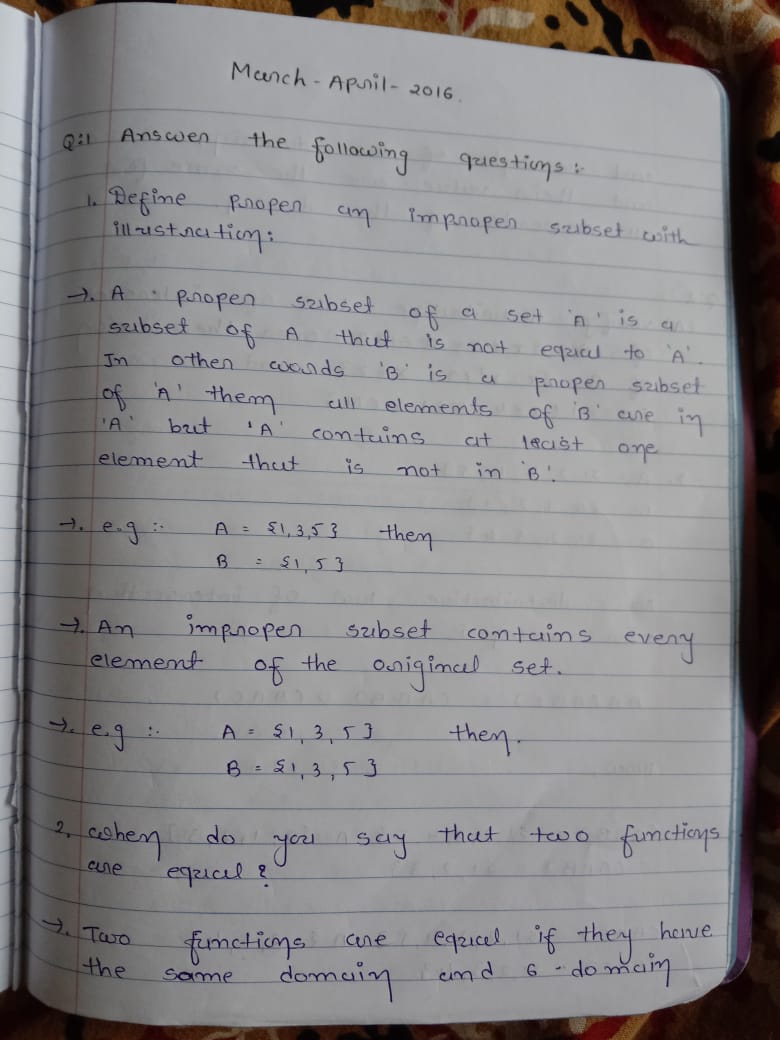 March - April - 2016.
Q:1 Answer the following questions :-
1. Define proper an improper subset with
illustration:
→. A proper subset of a set 'A' is a
subset of A that is not equal to 'A'.
In other words 'B' is a proper subset
of 'A' them all elements of 'B' are in
'A' but 'A' contains at least one
element that is not in 'B'.
→. e.g :- A = {1,3,5} then
B = {1,5}
→. An improper subset contains every
element of the original set.
→. e.g :. A = {1, 3, 5} then.
B = {1, 3, 5}
2. when do you say that two functions
are equal?
→. Two functions are equal if they have
the same domain and 6 - domain